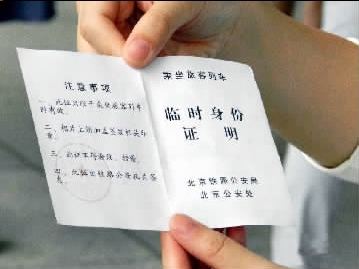 注意事项
一、此证只限于乘坐旅客列车时有效。
二、相片上须加盖
三、此证不得涂改、转借。
四、此证由铁路公安机关签发。
乘坐旅客列车
临时身份
证明
北京铁路公安局
北京公安处